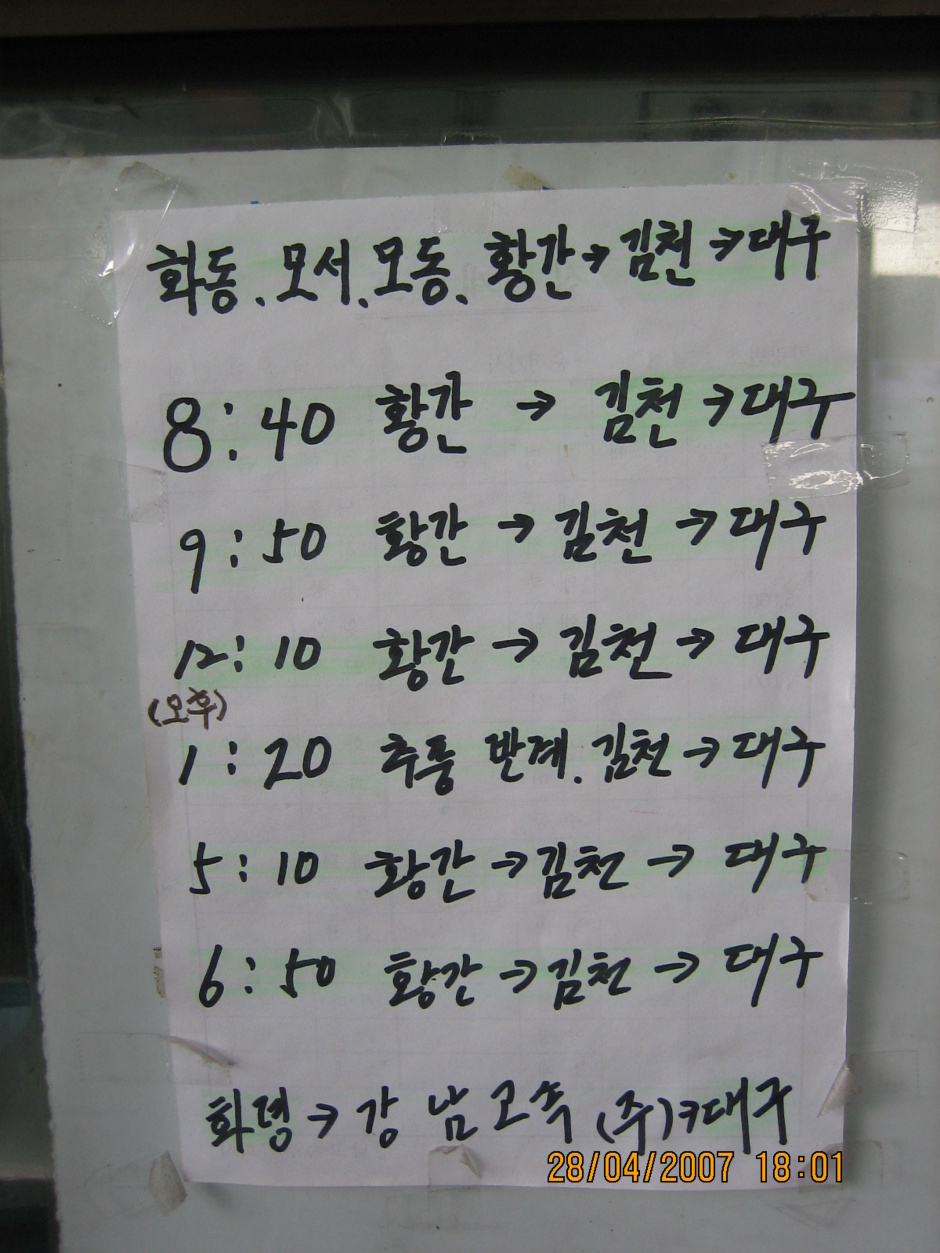 화동. 모서. 모동. 황간→김천→대구
8:40 황간 → 김천→대구
9:50 황간 → 김천 → 대구
12:10 황간 → 김천 → 대구
(오후)
1:20 추풍 반계. 김천→대구
5:10 황간→김천 → 대구
6:50 황간→김천 → 대구
화령→강남고속(주)→대구
28/04/2007 18:01